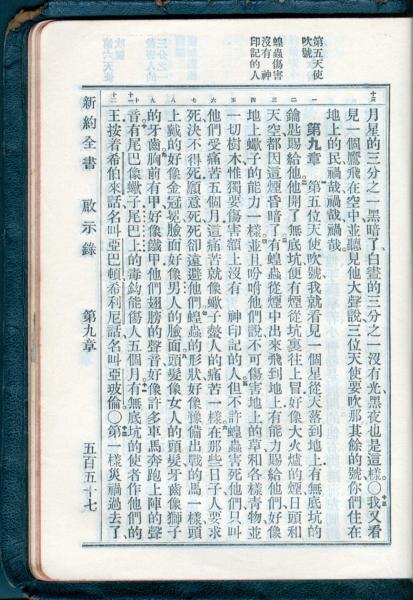 第五天使
吹號
蝗蟲傷害
沒有 神
印記的人
十三
月星的三分之一黑暗了白晝的三分之一沒有光黑夜也是這樣○我又看
見一個鷹飛在空中並聽見他大聲說三位天使要吹那其餘的號你們住在
地上的民禍哉禍哉禍哉
一
第九章 第五位天使吹號我就看見一個星從天落到地上有無底坑的
二
鑰匙賜給他他開了無底坑便有煙從坑裏往上冒好像大火爐的煙日頭和
三
天空都因這煙昏暗了有蝗蟲從煙中出來飛到地上有能力賜給他們好像
四
地上蠍子的能力一樣並且吩咐他們說不可傷害地上的草和各樣青物並
五
一切樹木惟獨要傷害額上沒有 神印記的人但不許蝗蟲害死他們只叫
六
他們受痛苦五個月這痛苦就像蠍子螫人的痛苦一樣在那些日子人要求
七
死決不得死願意死死卻遠避他們蝗蟲的形狀好像豫備出戰的馬一樣頭
八
上戴的好像金冠冕臉面好像男人的臉面頭髮像女人的頭髮牙齒像獅子
九
的牙齒胸前有甲好像鐵甲他們翅膀的聲音好像許多車馬奔跑上陣的聲
十 十一
音有尾巴像蠍子尾巴上的毒鈎能傷人五個月有無底坑的使者作他們的
十二
王按着希伯來話名叫亞巴頓希利尼話名叫亞玻倫○第一樣災禍過去了
新約全書 啟示錄 第九章 五百五十七